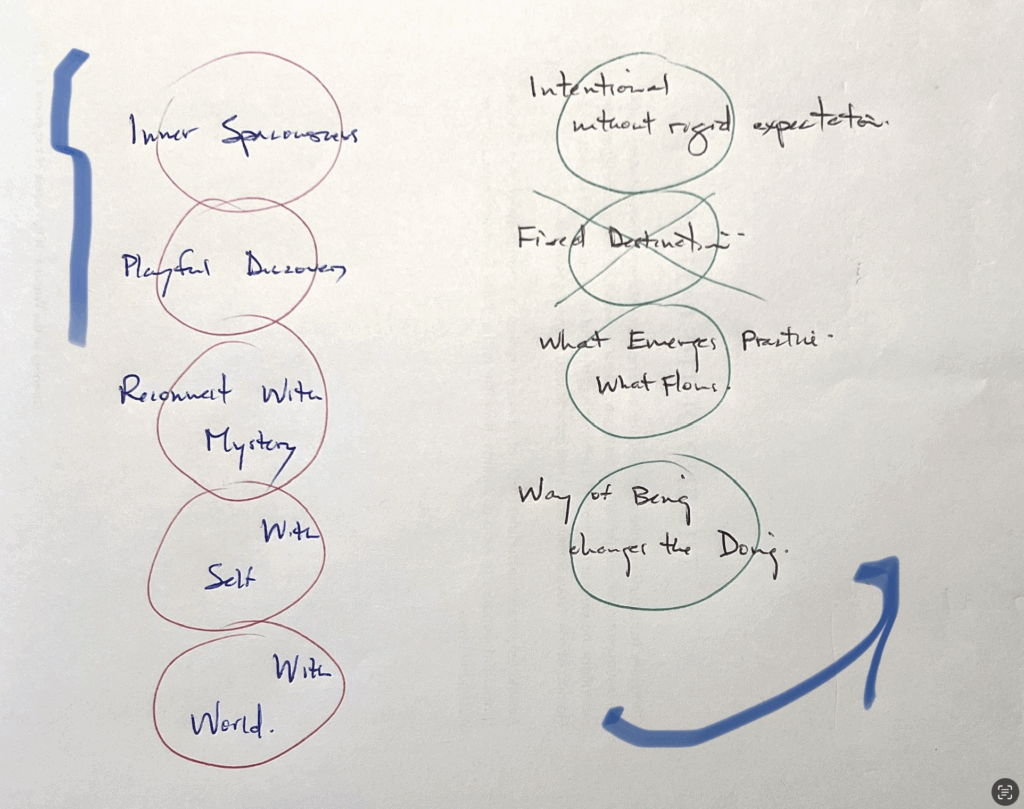 Inner Spaciousness
Playful Discovery
Reconnect With
Mystery
With
Self
With
World.
Intentional
without rigid expectation.
Fixed Destination
What Emerges Practice.
What Flows.
Way of Being
changes the Doing.